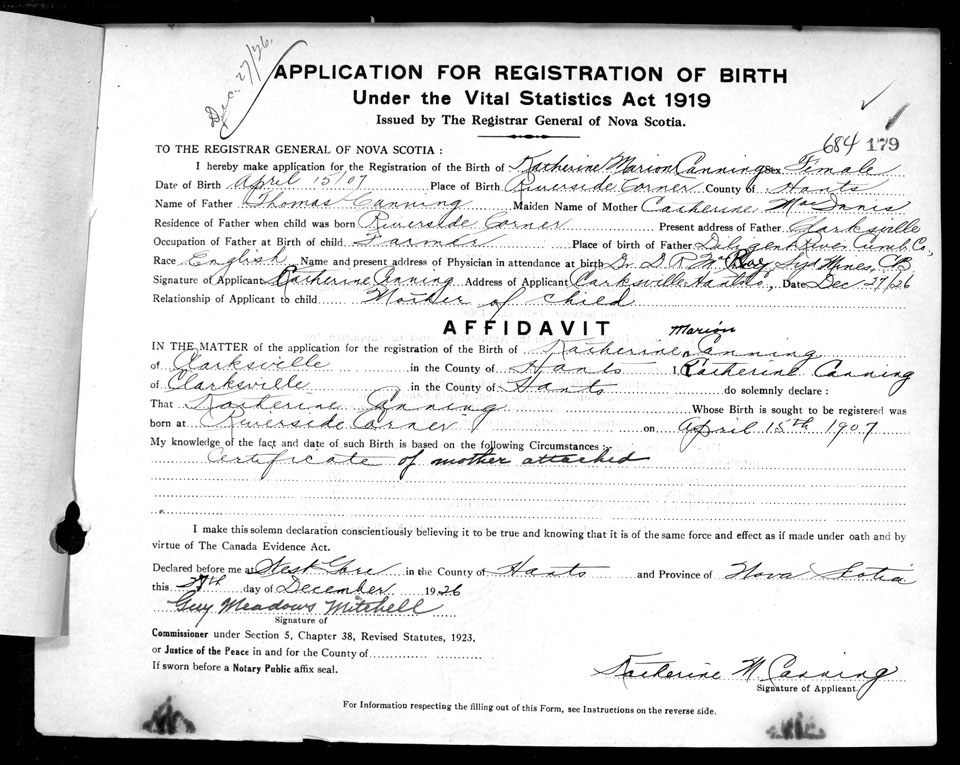 Dec. 27/26.
APPLICATION FOR REGISTRATION OF BIRTH
Under the Vital Statistics Act 1919
Issued by The Registrar General of Nova Scotia.
684 179
TO THE REGISTRAR GENERAL OF NOVA SCOTIA :
I hereby make application for the Registration of the Birth of Katherine Marion Canning Sex Female
Date of Birth April 15/07 Place of Birth Riverside Corner County of Hants
Name of Father Thomas Canning Maiden Name of Mother Catherine MacInnis
Residence of Father when child was born Riverside Corner Present address of Father Clarksville
Occupation of Father at Birth of child Farmer Place of birth of Father Diligent River Cumb. Co,
Race English Name and present address of Physician in attendance at birth Dr. D. R. Syd Mines, CB
Signature of Applicant Katherine Canning Address of Applicant Clarksville Hants, Date Dec 27/26
Relationship of Applicant to child Mother of child
AFFIDAVIT
Marion
IN THE MATTER of the application for the registration of the Birth of Katherine Canning
of Clarksville in the County of Hants I, Katherine Canning
of Clarksville in the County of Hants do solemnly declare :
That Katherine Canning Whose Birth is sought to be registered was
born at Riverside Corner on April 15th 1907
My knowledge of the fact and date of such Birth is based on the following Circumstances :-
Certificate of mother attached
I make this solemn declaration conscientiously believing it to be true and knowing that it is of the same force and effect as if made under oath and by
virtue of The Canada Evidence Act.
Declared before me at West Gore in the County of Hants and Province of Nova Scotia
this 27th day of December 1926
Guy Meadows Mitchell
Signature of
Commissioner under Section 5, Chapter 38, Revised Statutes, 1923,
or Justice of the Peace in and for the County of
If sworn before a Notary Public affix seal.
Katherine M. Canning
Signature of Applicant.
For Information respecting the filling out of this Form, see Instructions on the reverse side.